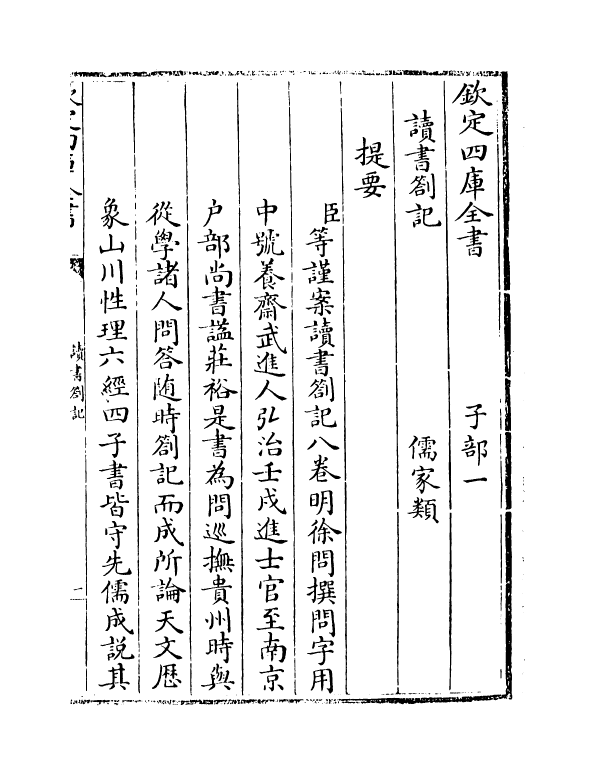 欽定四庫全書　子部一
讀書劄記　儒家類
提要
臣等謹案讀書劄記八卷明徐問撰問字用
中號養齋武進人弘治壬戌進士官至南京
户部尚書謚莊裕是書為問巡撫貴州時與
從學諸人問答随時劄記而成所論天文歴
象山川性理六經四子書皆守先儒成説其
欽定四庫全書
讀書劄記